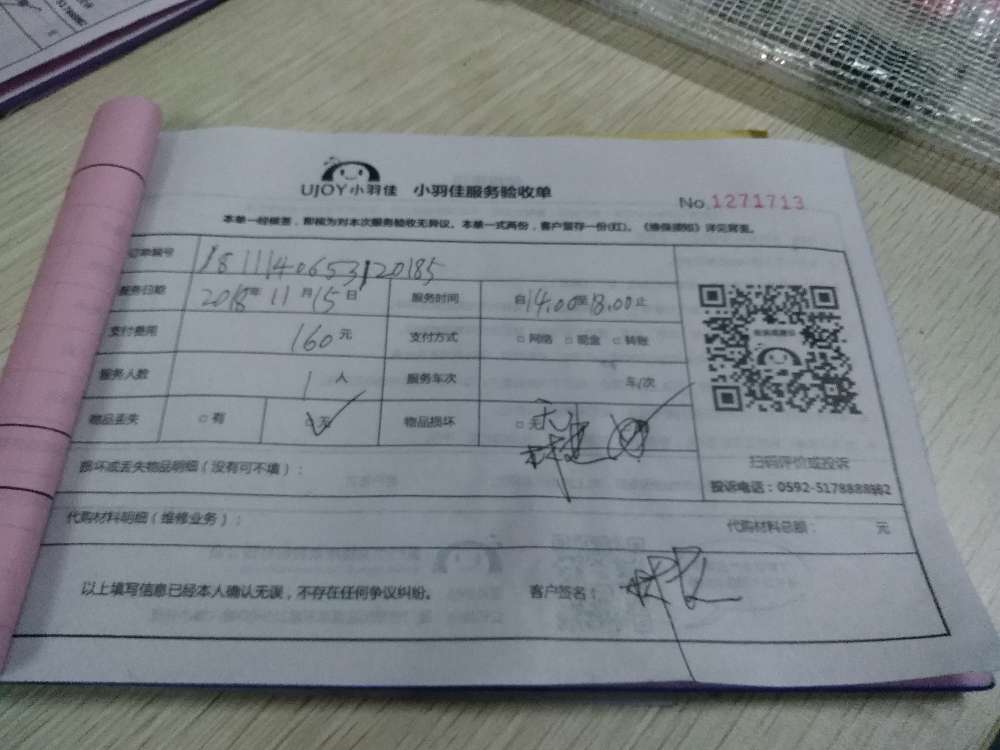 UJOY小羽佳 小羽佳服务验收单
No.1271713
本单一经核签，即视为对本次服务验收无异议。本单一式两份，客户留存一份(红)。《维保须知》详见背面。
订单编号 1811140653120185
服务日期 2018年 11月 15日 服务时间 自14:00至18:00止
支付费用 160元 支付方式 □网络 □现金 □转账
服务人数 1人 服务车次 车/次
物品丢失 □有 □无 物品损坏 □无
损坏或丢失物品明细（没有可不填）：
扫码评价或投诉
投诉电话：0592-5178888转2
代购材料明细（维修业务）： 代购材料总额： 元
以上填写信息已经本人确认无误，不存在任何争议纠纷。 客户签名：